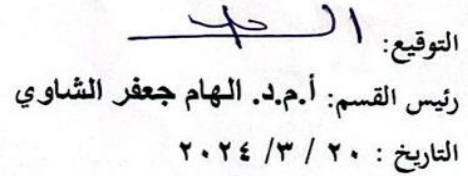 التوقيع:
رئيس القسم: أ.م.د. الهام جعفر الشاوي
التاريخ : ٢٠ / ٣/ ٢٠٢٤